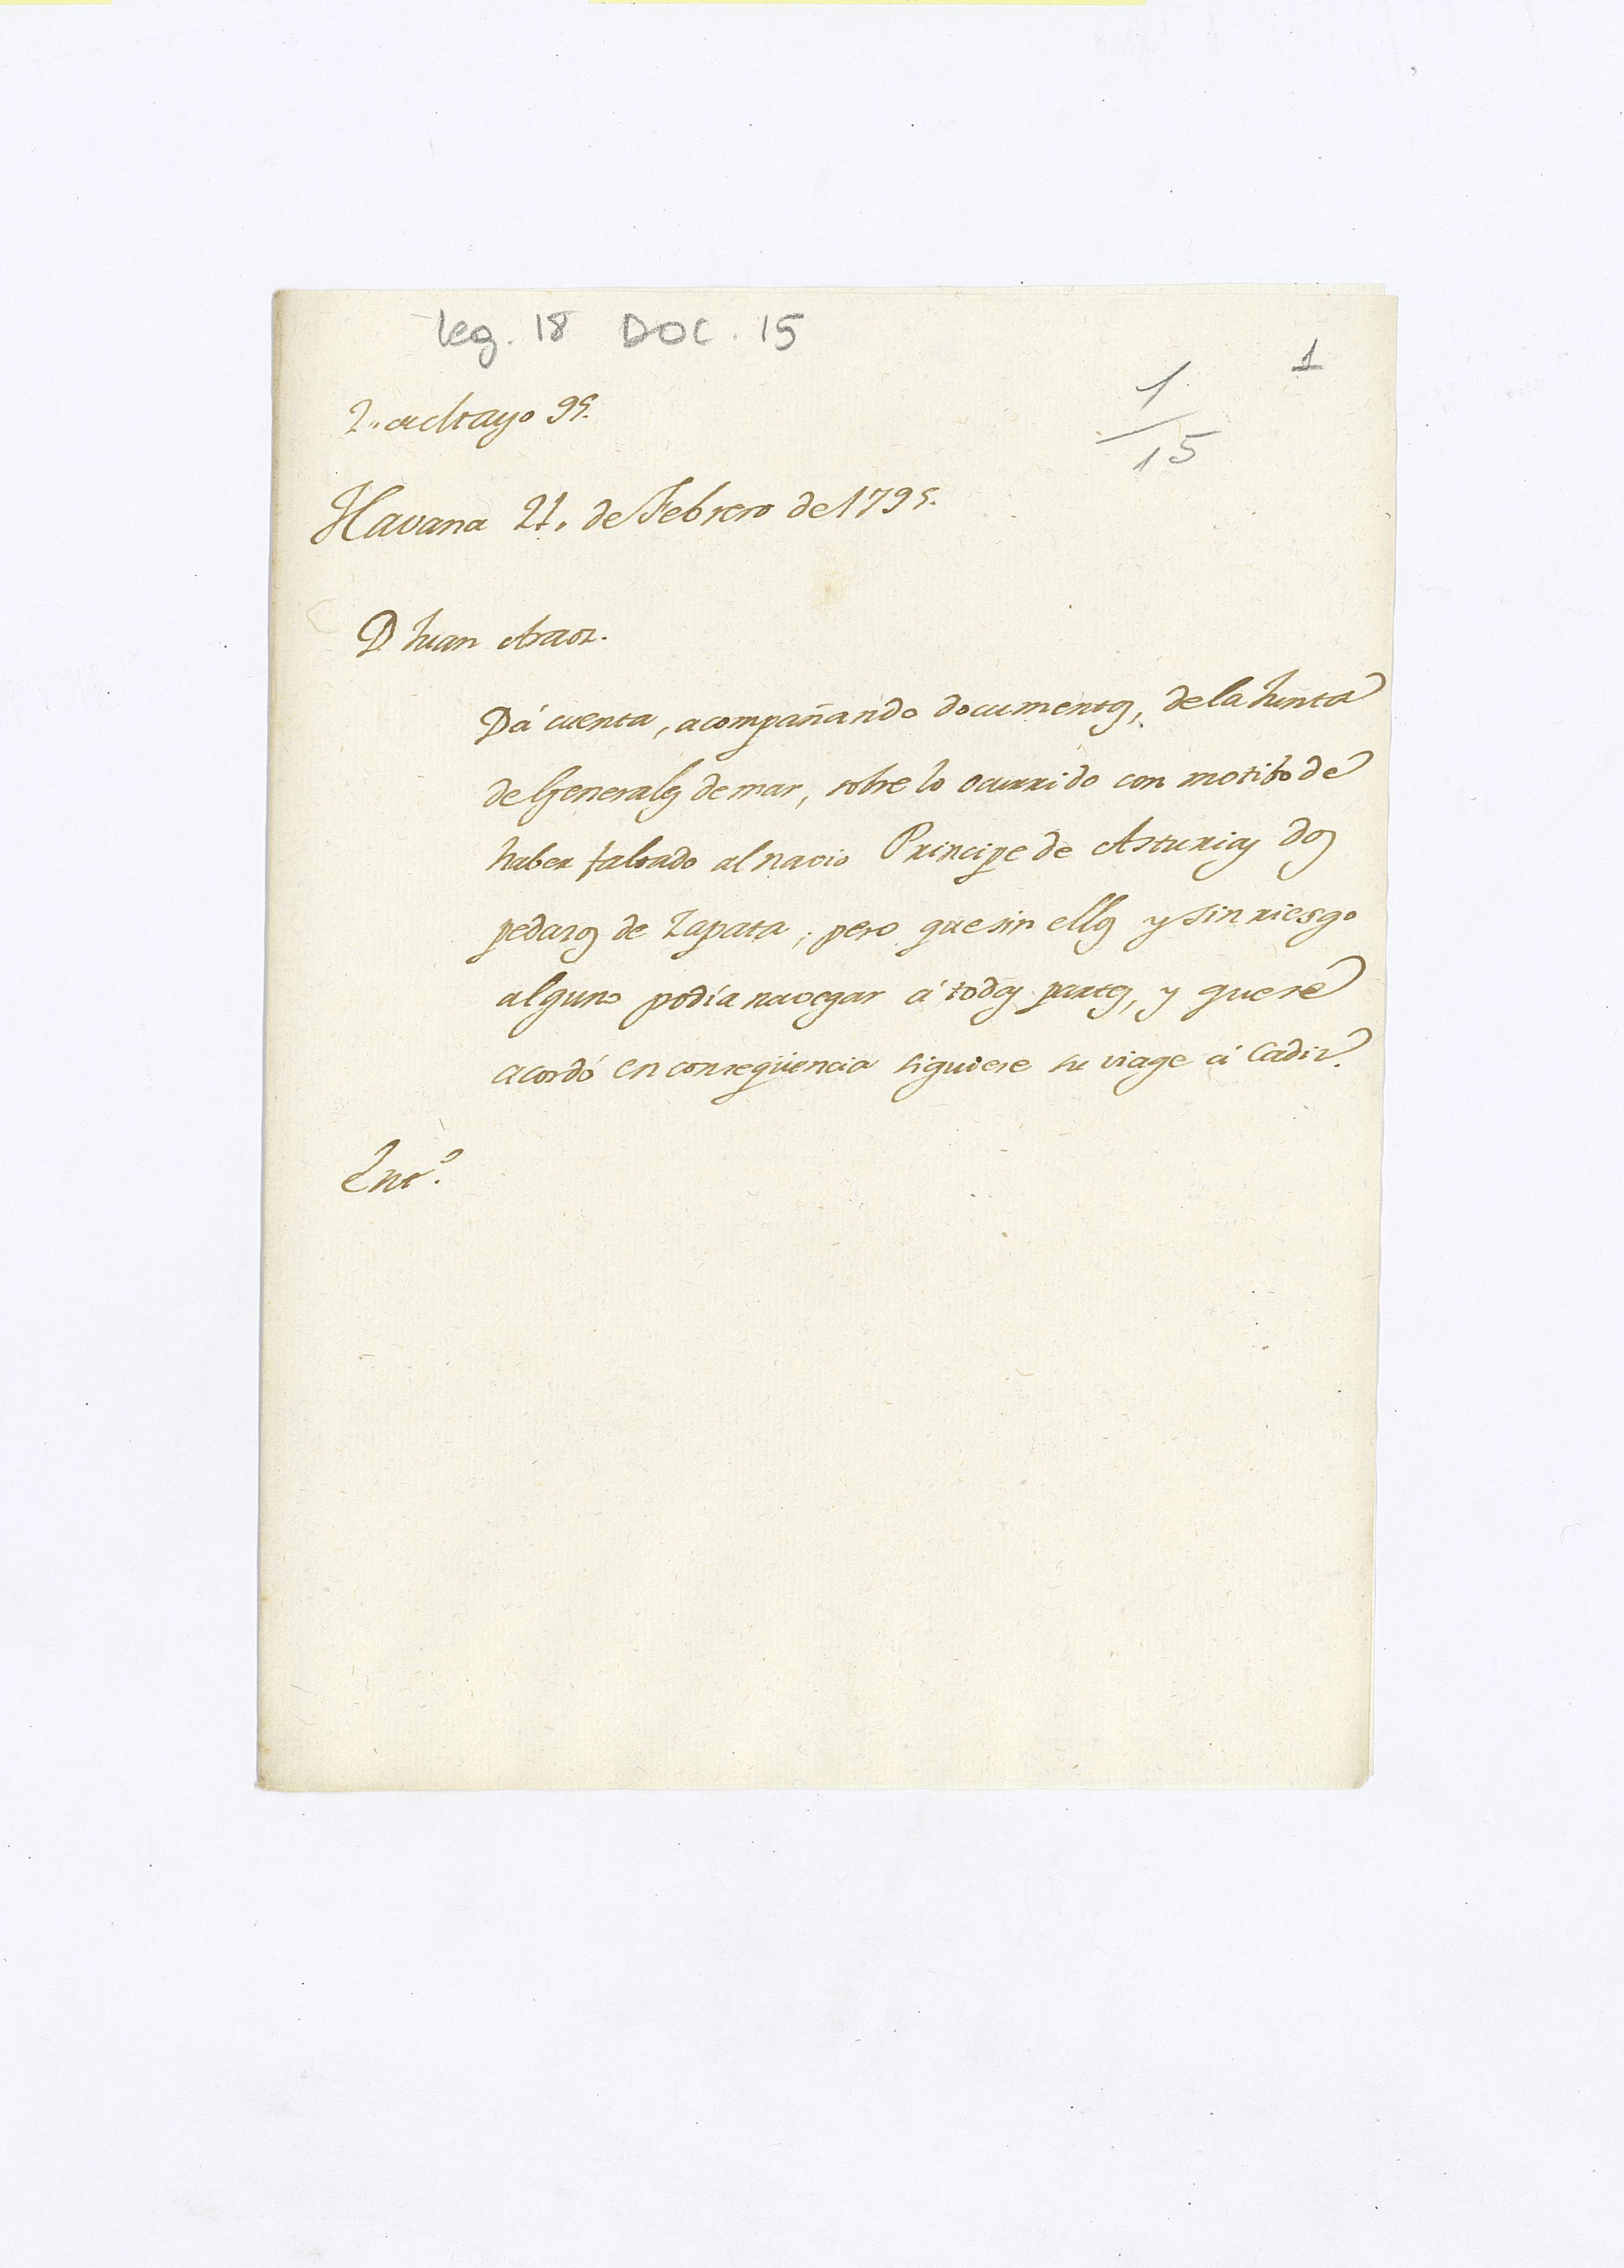 leg. 18 DOC. 15
1
1
15
2,, de Mayo 95.
Havana 21. de Febrero de 1795.
D Juan Araoz.
Dá cuenta, acompañando documentos, de la Junta
de Generales de mar, sobre lo ocurrido con motibo de
haber faltado al navio Principe de Asturias dos
pedazos de Zapata, pero que sin ellos y sin riesgo
alguno podía navegar á todas partes, y que se
acordó en conseqüencia siguiese su viage á Cadiz.
Ent.º